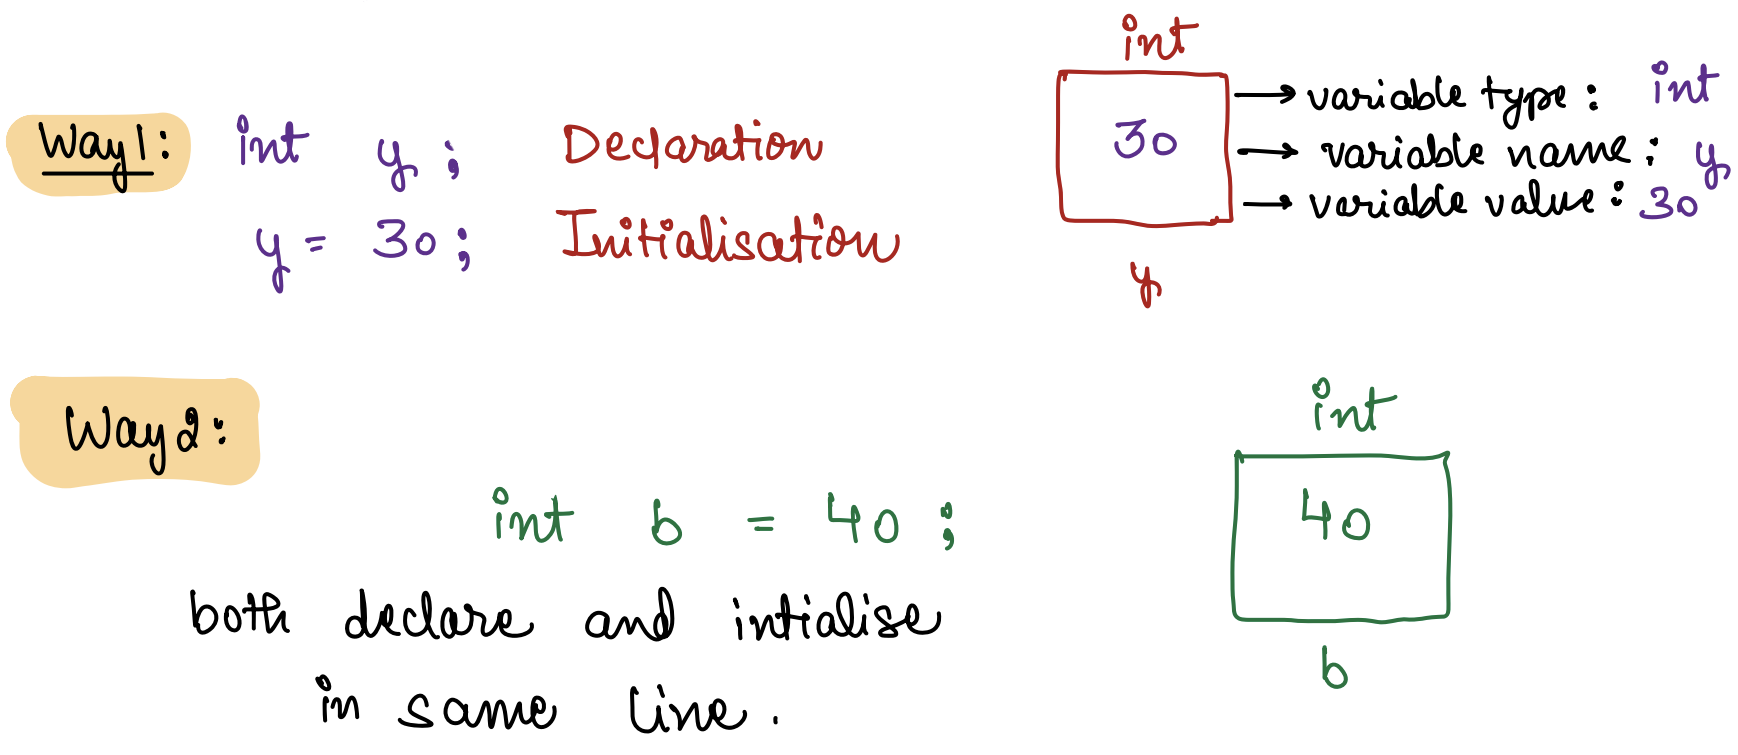 Way1: int y; Declaration
y = 30; Initialisation
int
30
y
→ variable type: int
→ variable name: y
→ variable value: 30
Way2:
int b = 40;
both declare and intialise
in same line.
int
40
b